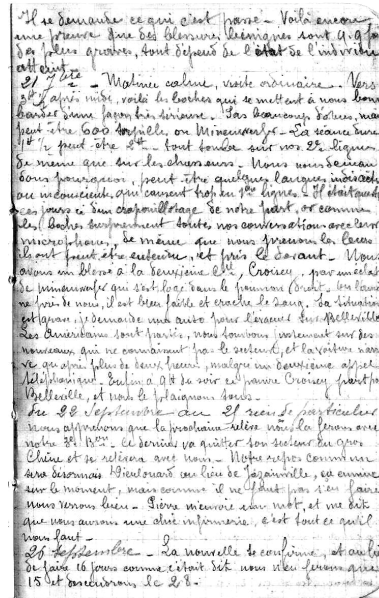 Il se demande ce qui s'est passé - Voilà encore
une preuve que des blessures bénignes sont q.q.f
des plus graves, tout dépend de l'état de l'individu
atteint.
21 7bre - Matinée calme, visite ordinaire. Vers
3h après midi, voilà les boches qui se mettent à nous bom
barder d'une façon très sérieuse. Pas beaucoup d'obus, mais
peut être 600 torpilles, ou Minenverfer - La séance dure
1h½ peut être 2h - tout tombe sur nos 2e lignes
de même que sur les chasseurs. Nous nous deman
dons pourquoi, peut être quelques langues indiscrètes
ou inconscientes qui causent trop en 1re lignes - Il était question
ces jours ci d'un crapouillotage de notre part, or comme
les boches surprennent toutes nos conversations avec leurs
microphones, de même que nous prenons les leurs
ils ont peut être entendu, et pris le devant - Nous
avons un blessé à la deuxième Cie, Croucy, par un éclat
de minenverfer qui s'est logé dans le poumon droit. On l'amè
ne près de nous, il est bien faible et crache le sang. La situation
est grave, je demande une auto pour l'évacuer sur Belleville
Les Américains sont partis, nous tombons justement sur des
nouveaux, qui ne connaissent pas le secteur, et la voiture n'arri
ve qu'après plus de deux heures, malgré un deuxième appel
téléphonique. Enfin à 9h de soir ce pauvre Croucy part pour
Belleville, et nous le plaignons tous.
du 22 septembre au 25 rien de particulier
Nous apprenons que la prochaine relève nous la ferons avec
notre 3e Bon - Ce dernier va quitter son secteur du gros
Chêne et se retirera avec nous. - Notre repos commun
sera désormais Dieulouard au lieu de Jezainville, ça ennuie
sur le moment, mais comme il ne faut pas s'en faire
nous verrons bien - Pierre m'envoie un mot, et me dit
que nous aurons une chic infirmerie, c'est tout ce qu'il
nous faut.
26 septembre - La nouvelle se confirme, et au lieu
de faire 16 jours comme c'était dit nous n'en ferons que
15 et descendrons le 28.